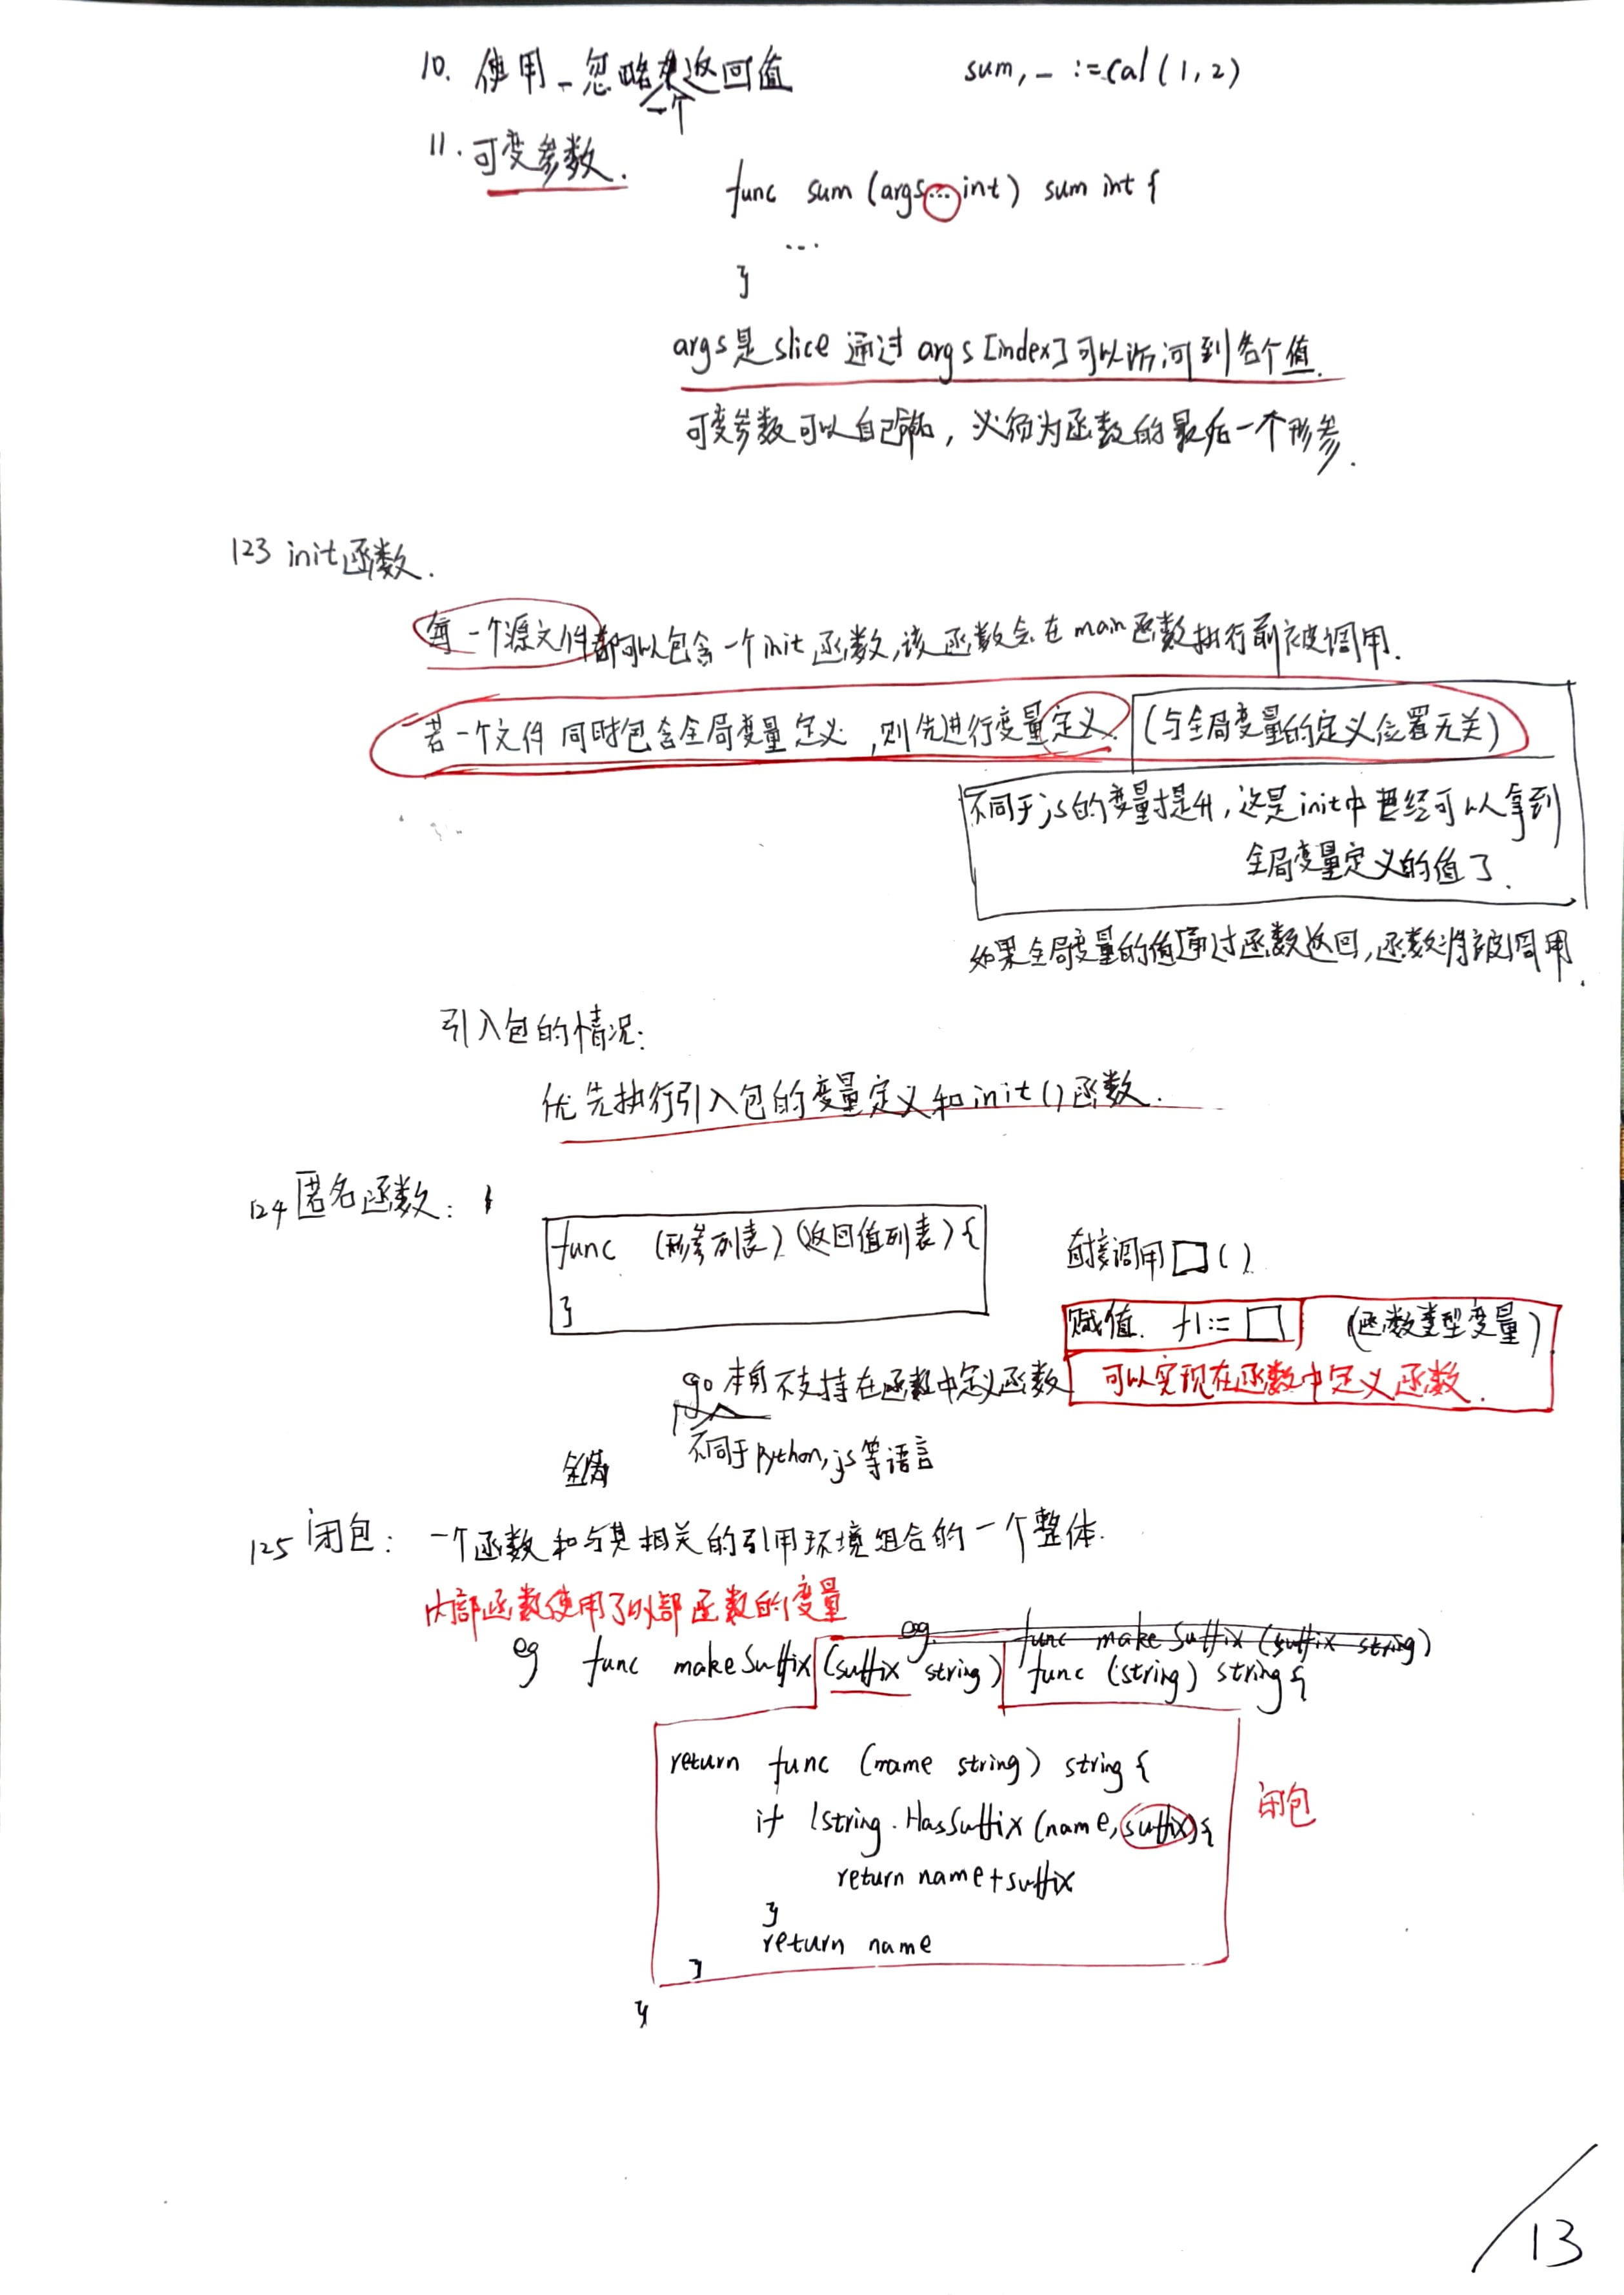 10. 使用_忽略一个返回值 sum, _ := Cal(1,2)
11. 可变参数.
func sum (args... int) sum int {
...
}
args是slice 通过 args[index]可以访问到各个值.
可变参数可以自己命名, 必须为函数的最后一个形参.
123 init函数.
每一个源文件都可以包含一个init函数,该函数会在main函数执行前被调用.
若一个文件同时包含全局变量定义,则先进行变量定义.(与全局变量的定义位置无关)
不同于js的变量提升,这是init中已经可以拿到
全局变量定义的值了.
如果全局变量的值通过函数返回,函数将被调用.
引入包的情况:
优先执行引入包的变量定义和init()函数.
124 匿名函数:
func (形参列表) (返回值列表) {
}
直接调用□()
赋值. f1:=□ (函数类型变量)
go本身不支持在函数中定义函数 可以实现在函数中定义函数.
不同于python,js等语言
全局
125 闭包: 一个函数和与其相关的引用环境组合的一个整体.
内部函数使用了外部函数的变量
eg. func makeSuffix (suffix string)
eg func makeSuffix (suffix string) func (string) string {
return func (name string) string {
if !string.HasSuffix(name,suffix){
return name+suffix
}
return name
}
}
闭包
13